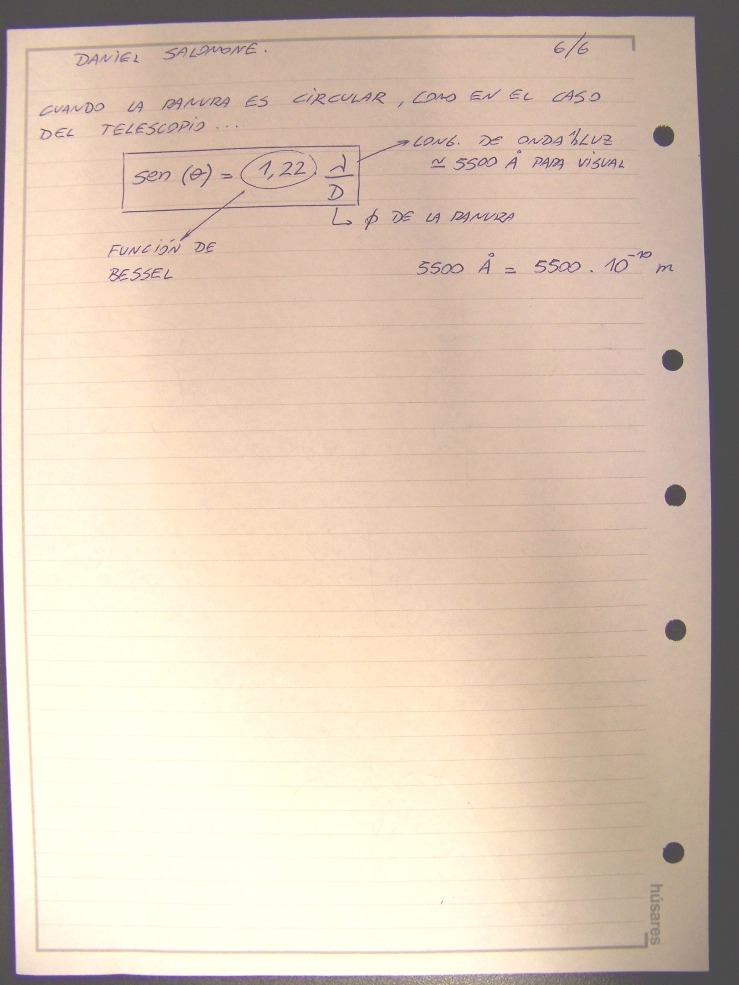 DANIEL SALOMONE.
6/6
CUANDO LA RANURA ES CIRCULAR, COMO EN EL CASO
DEL TELESCOPIO...
sen (θ) = 1,22 · λ/D
LONG. DE ONDA LUZ
≃ 5500 Å PARA VISUAL
↳ ϕ DE LA RANURA
FUNCIÓN DE
BESSEL
5500 Å = 5500 . 10⁻¹⁰ m
húsares